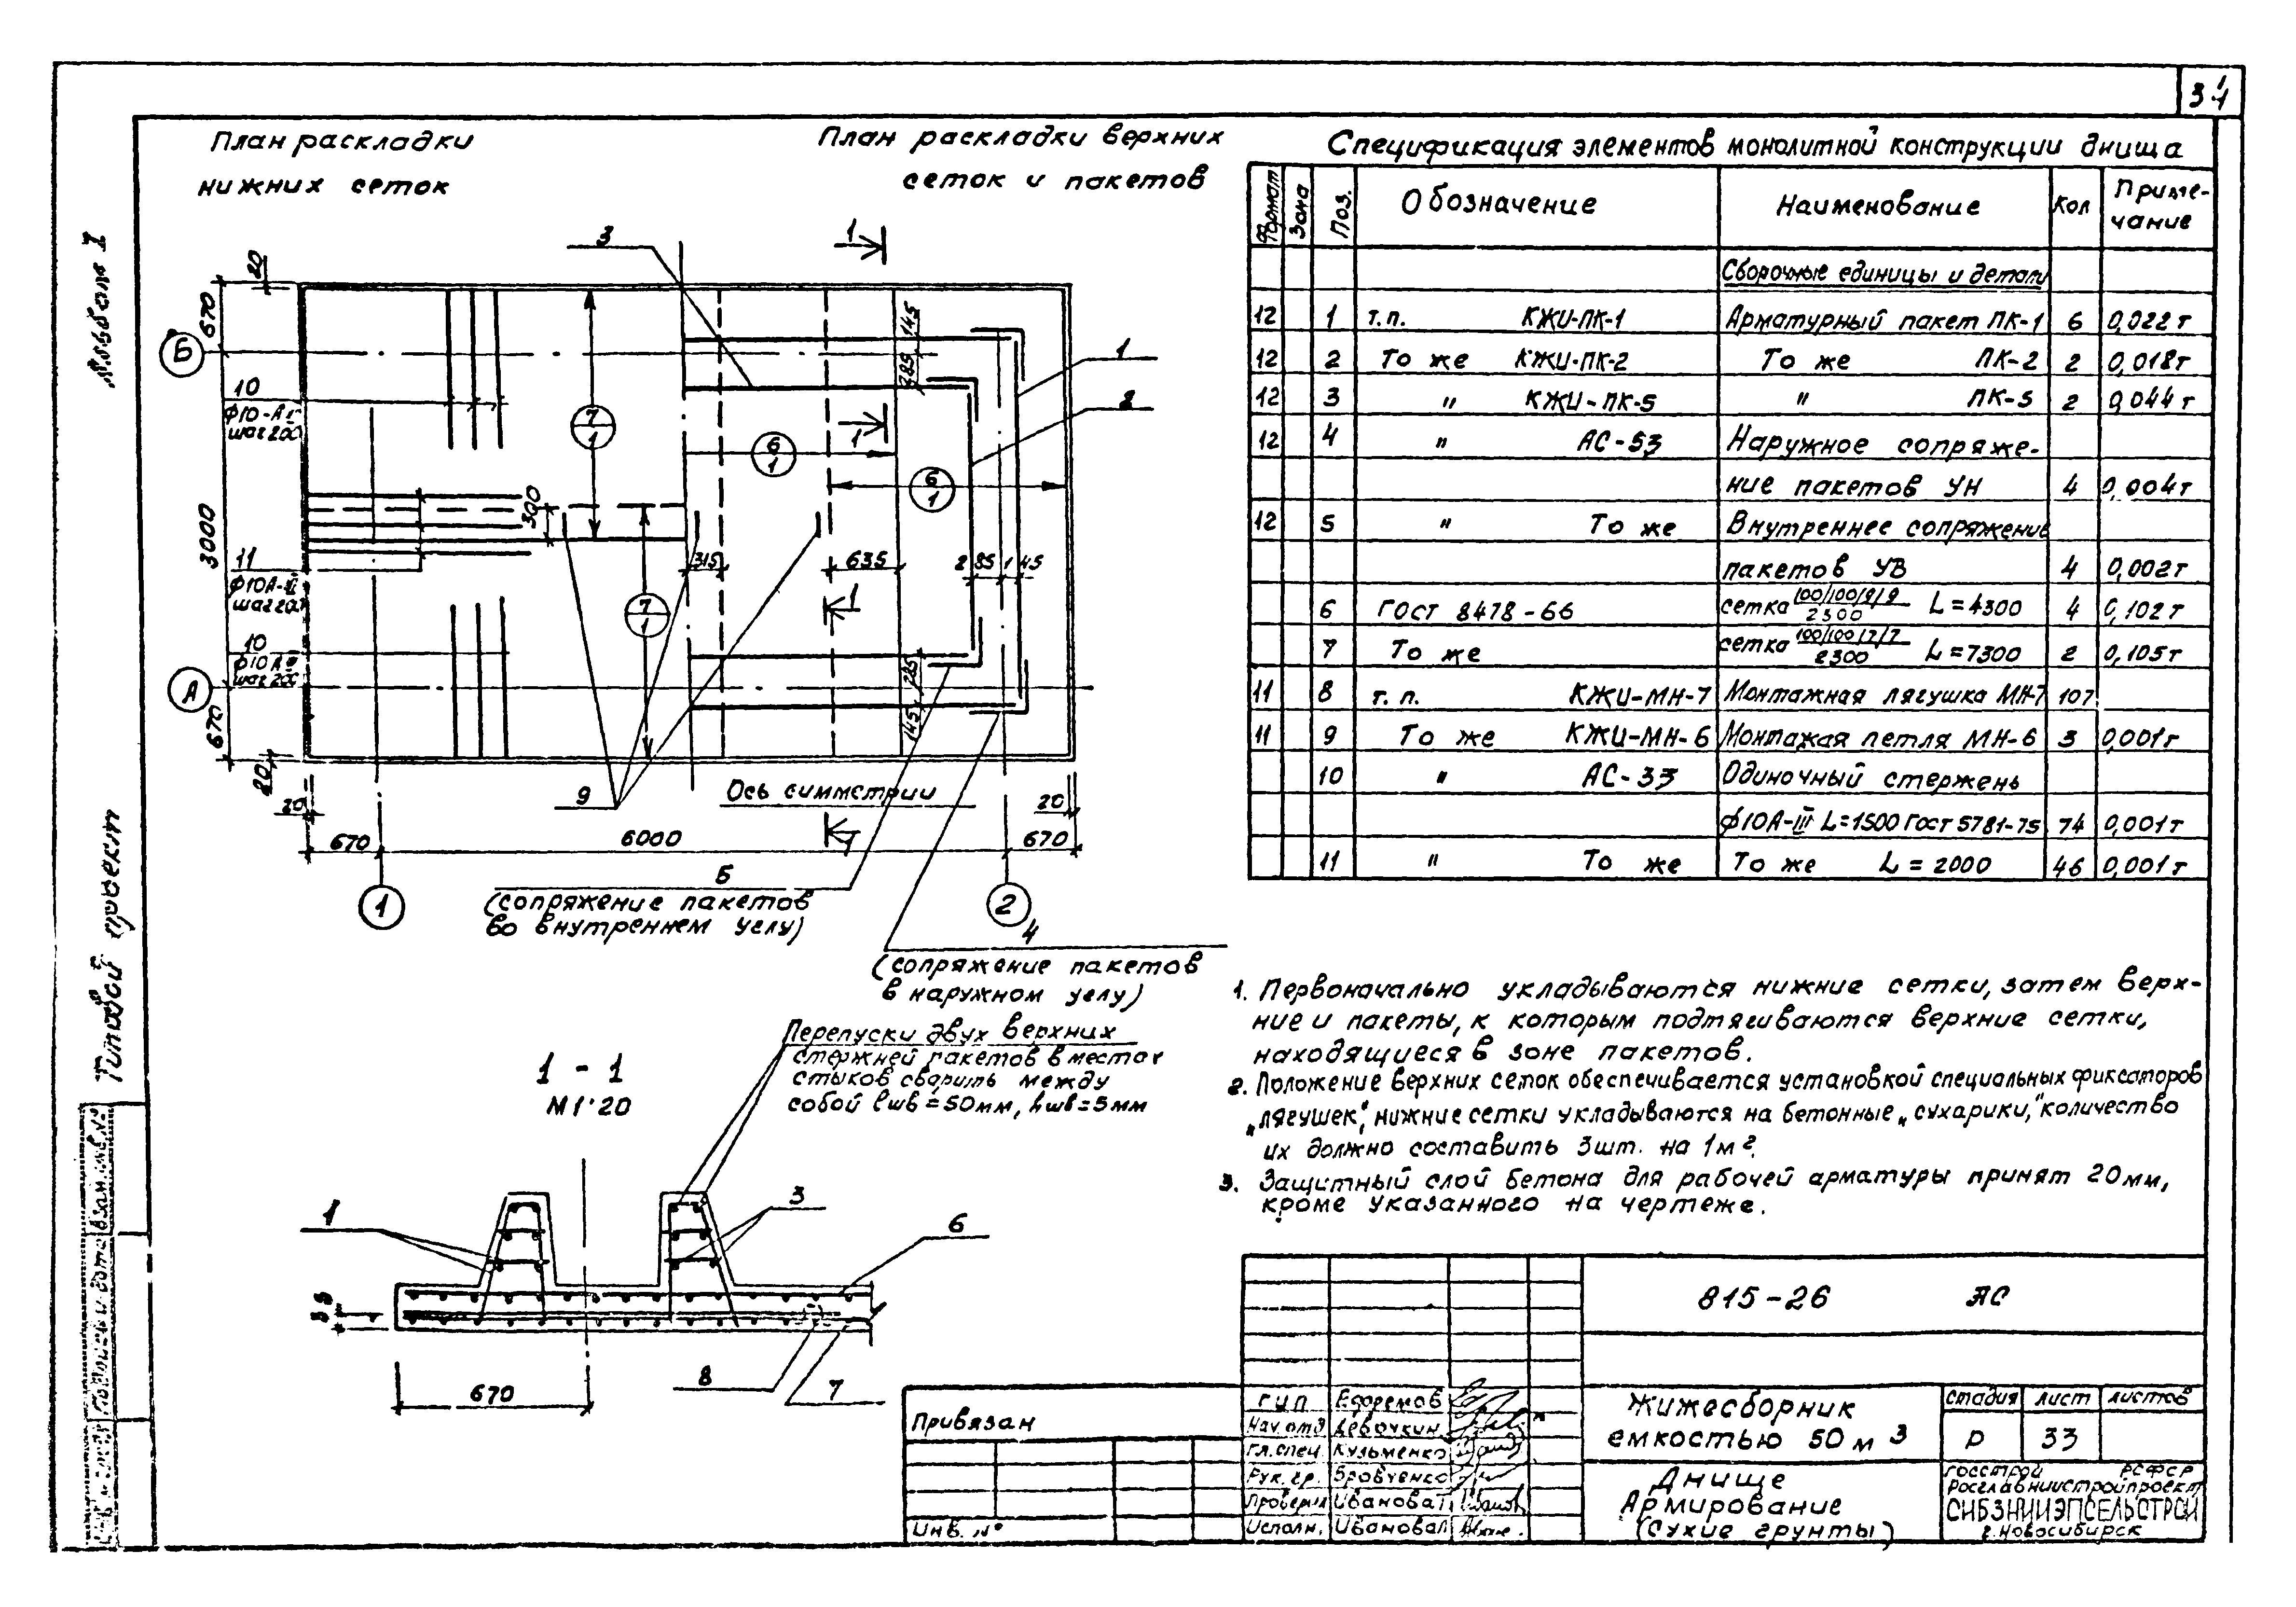 34
План раскладки
нижних сеток
План раскладки верхних
сеток и пакетов
Альбом I
Типовой проект
20
670
Б
10
ф10-АIII
шаг 200
3000
11
ф10А-III
шаг 200
10
ф10АIII
шаг 200
А
670
20
3
1
145
285
1
2
7
1
6
1
1
6
1
300
315
635
285
145
7
1
1
285
145
9
Ось симметрии
20
20
670
6000
670
1
1
2
5
(сопряжение пакетов
во внутреннем углу)
4
(сопряжение пакетов
в наружном углу)
Перепуски двух верхних
стержней пакетов в местах
стыков сварить между
собой lшв=50мм, hшв=5мм
1 - 1
М1:20
1
3
6
670
8
7
Спецификация элементов монолитной конструкции днища
Формат Зона Поз. Обозначение Наименование Кол Приме-
чание
Сборочные единицы и детали
12 1 т.п. КЖИ-ПК-1 Арматурный пакет ПК-1 6 0,022т
12 2 То же КЖИ-ПК-2 То же ПК-2 2 0,018т
12 3 " КЖИ-ПК-5 " ПК-5 2 0,044т
12 4 " АС-53 Наружное сопряже-
ние пакетов УН 4 0,004т
12 5 " То же Внутреннее сопряжение
пакетов УВ 4 0,002т
6 ГОСТ 8478-66 сетка 100/100/9/9/2300 L=4300 4 0,102т
7 То же сетка 100/100/7/7/2300 L=7300 2 0,105т
11 8 т.п. КЖИ-МН-7 Монтажная лягушка МН-7 107
11 9 То же КЖИ-МН-6 Монтажая петля МН-6 3 0,001т
10 " АС-33 Одиночный стержень
ф10А-III L=1500 Гост 5781-75 74 0,001т
11 " То же То же L=2000 46 0,001т
1. Первоначально укладываются нижние сетки, затем верх-
ние и пакеты, к которым подтягиваются верхние сетки,
находящиеся в зоне пакетов.
2. Положение верхних сеток обеспечивается установкой специальных фиксаторов
„лягушек", нижние сетки укладываются на бетонные „сухарики," количество
их должно составить 3шт. на 1м2.
3. Защитный слой бетона для рабочей арматуры принят 20мм,
кроме указанного на чертеже.
815-26 АС
Привязан
Инв. №
ГИП Ефремов
Нач.отд Девочкин
Гл.спец Кузьменко
Рук.гр. Бровченко
Проверил Иванова
Исполн. Иванова
Жижесборник
емкостью 50 м3
Стадия Лист Листов
Р 33
Днище
Армирование
(Сухие грунты)
Госстрой РСФСР
Росглавниистройпроект
СИБЗНИИЭПСЕЛЬСТРОЙ
г.Новосибирск